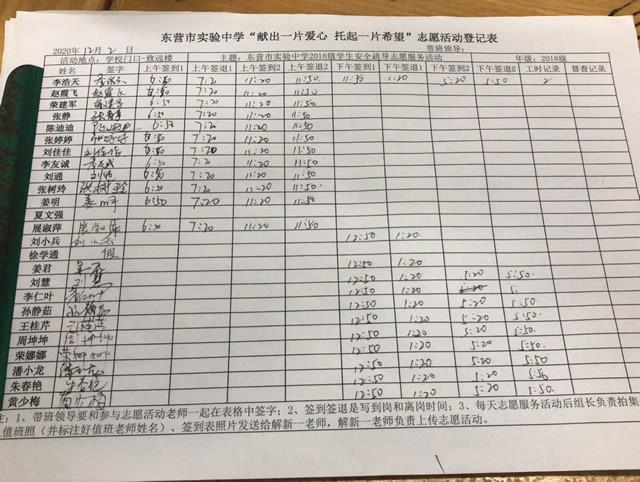 东营市实验中学“献出一片爱心 托起一片希望”志愿活动登记表
2020年12月2日 带班领导:
活动地点:学校门口-致远楼 主题:东营市实验中学2018级学生安全疏导志愿服务活动 年级:2018级
姓名 签字 上午签到1 上午签退1 上午签到2 上午签退2 下午签到1 下午签退1 下午签到2 下午签退2 工时记录 督查记录
李浩天 李浩天 6:50 7:20 11:20 11:50 1:20 5:20 5:50 2
赵霞飞 赵霞飞 6:50 7:20 11:20 11:50
荣建军 荣建军 6:50 7:20 11:20 11:50
张静 张静 6:50 7:20 11:20 11:50
陈迪迪 陈迪迪 6:50 7:20 11:20 11:50
张婷婷 张婷婷 6:50 7:20 11:20 11:50
刘佳佳 刘佳佳 6:50 7:20 11:20 11:50
李友诚 李友诚 6:50 7:20 11:20 11:50
刘通 刘通 6:50 7:20 11:20 11:50
张树玲 张树玲 6:50 7:20 11:20 11:50
姜明 姜明 6:50 7:20 11:20 11:50
夏文强
展淑萍 展淑萍 6:50 7:20 11:20 11:50
刘小兵 刘小兵 12:50 1:20
徐学通 假
姜君 姜君 12:50 1:20
刘慧 12:50 1:20 5:20 5:50
李仁叶 12:50 1:20
孙静茹 12:50 1:20 5:20 5:50
王桂芹 王桂芹 12:50 1:20 5:20 5:50
周坤坤 周坤坤 12:50 1:20 5:20 5:50
荣娜娜 荣娜娜 12:50 1:20 5:20 5:50
潘小龙 12:50 1:20 5:20 5:50
朱春艳 朱春艳 12:50 1:20 5:20 5:50
黄少梅 黄少梅 12:50 1:20 5:20 5:50
注:1、带班领导要和参与志愿活动老师一起在表格中签字;2、签到签退是写到岗和离岗时间;3、每天志愿服务活动后组长负责拍集
值班照(并标注好值班老师姓名)、签到表照片发送给解新一老师,解新一老师负责上传志愿活动。